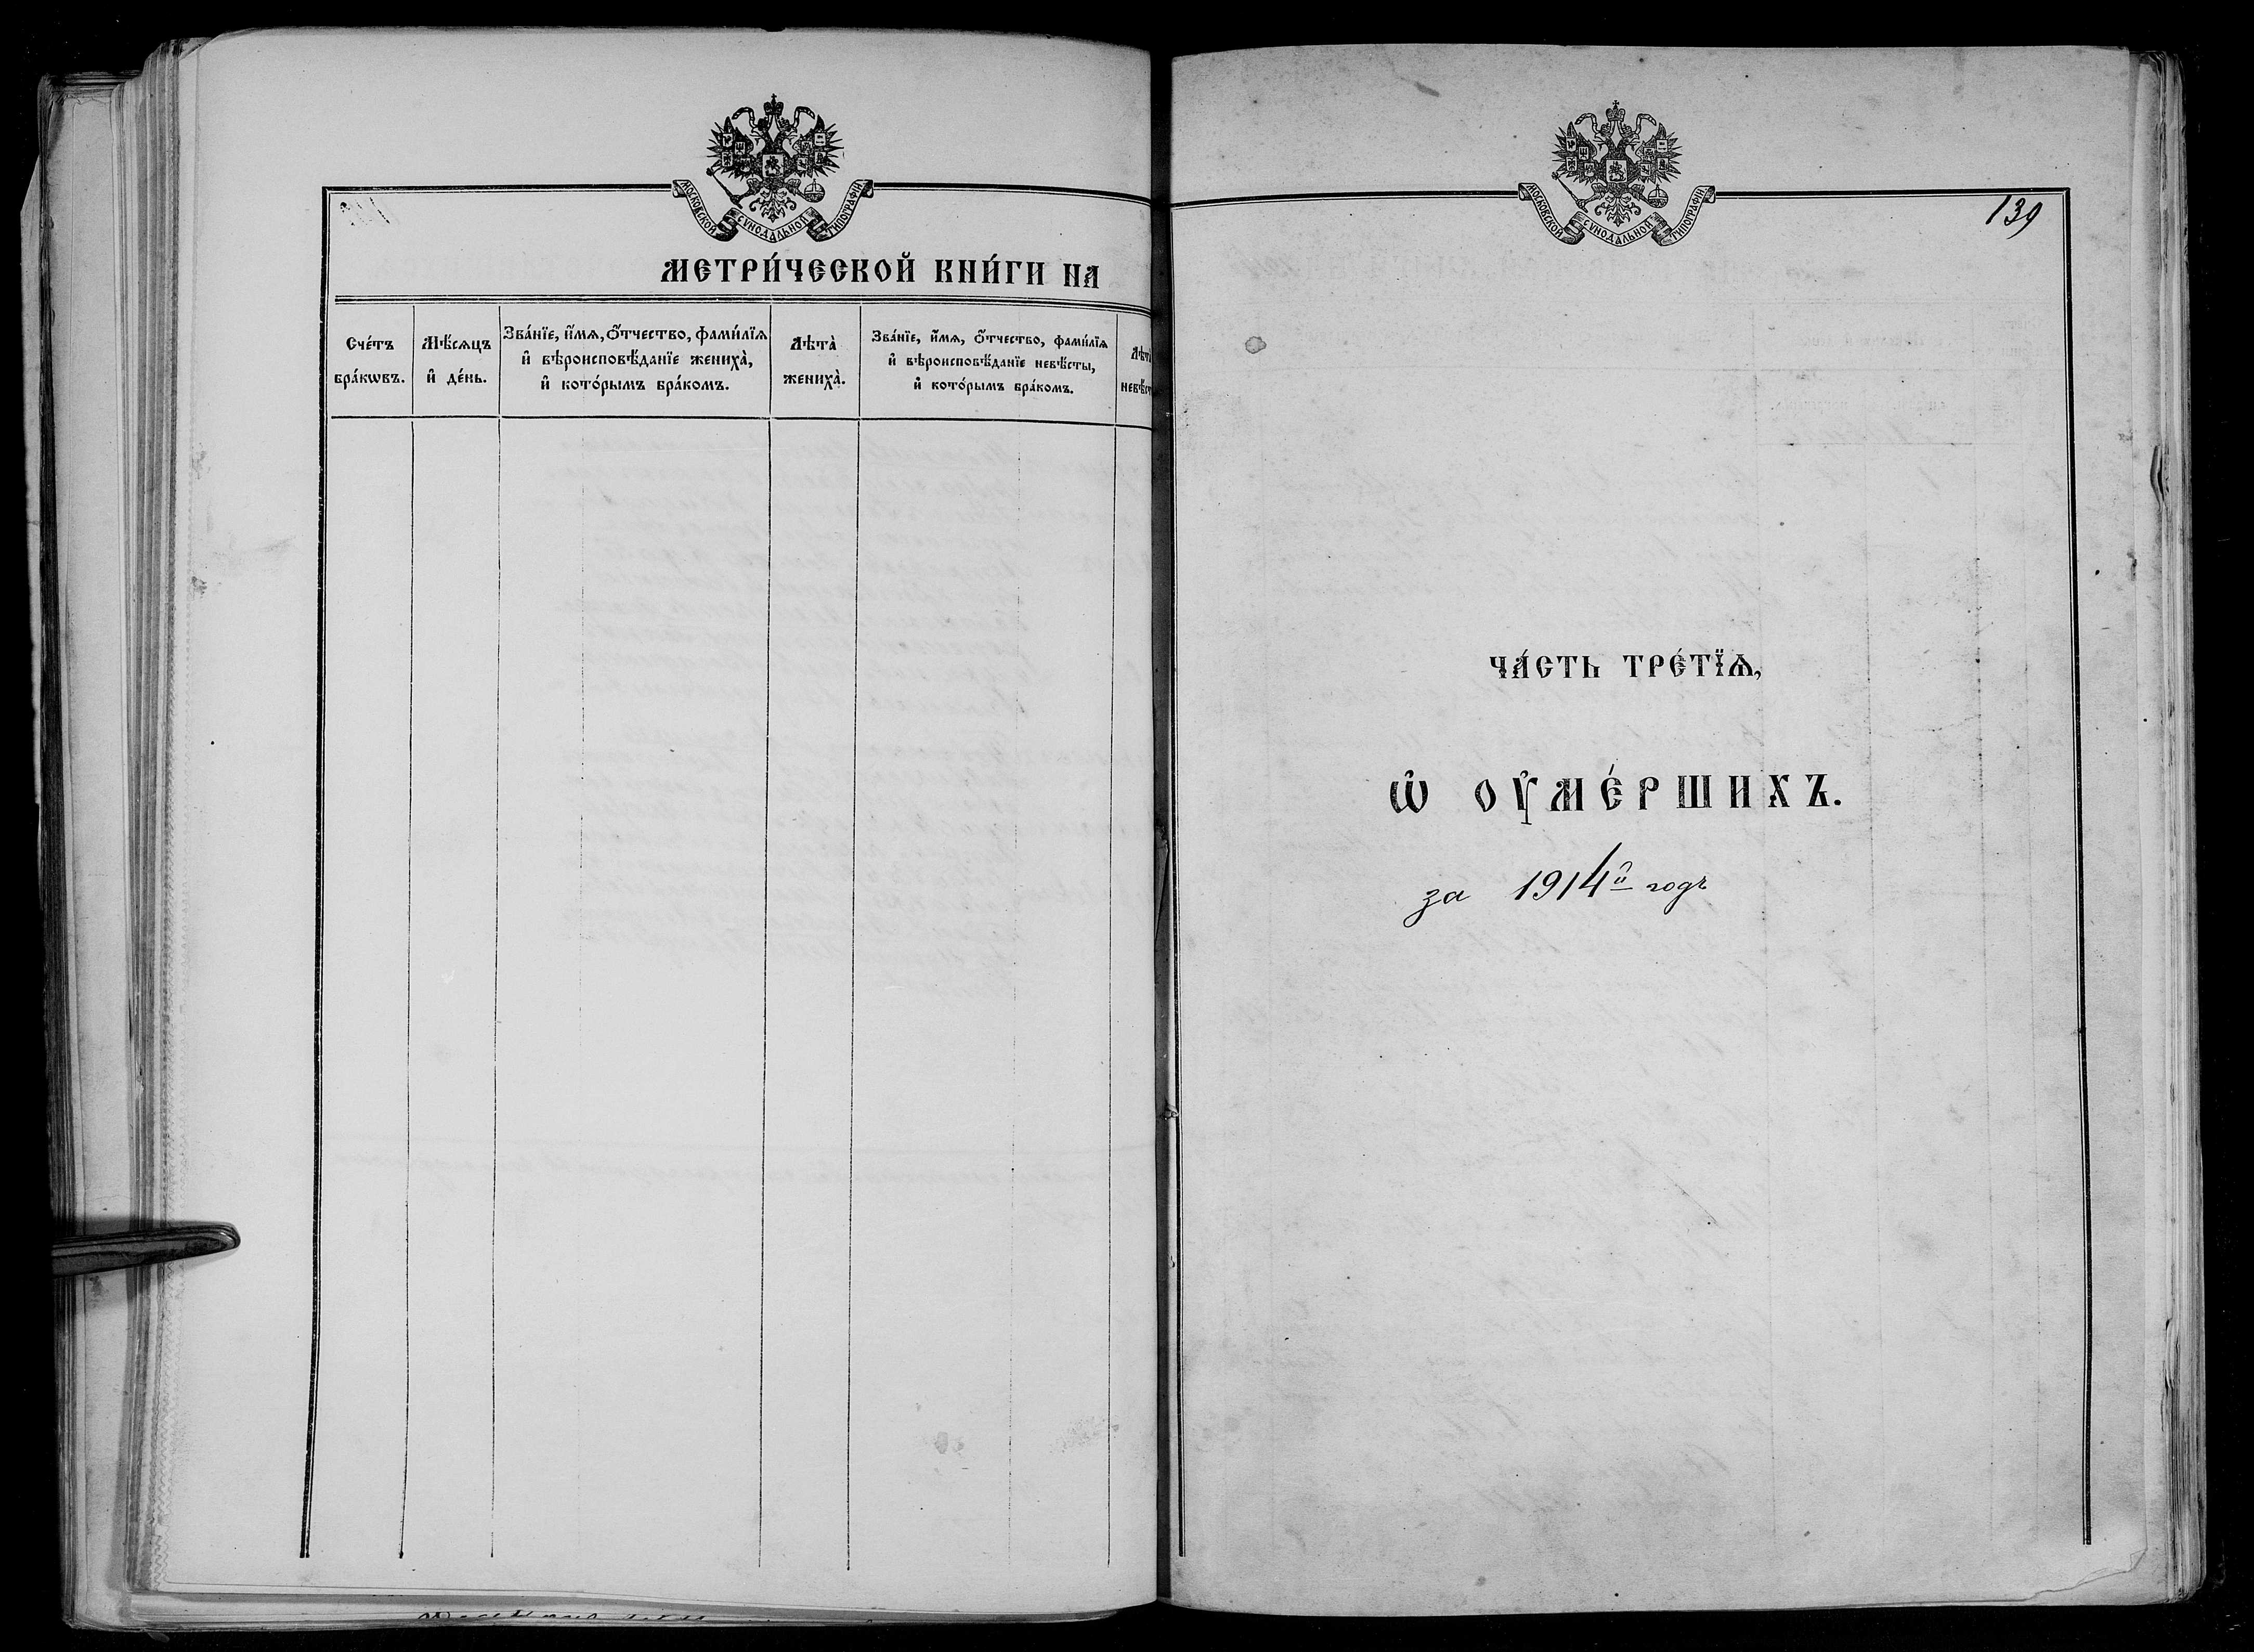 МОСКОВСКОЙ СѴНОДАЛЬНОЙ ТИПОГРАФІИ
МЕТРИ́ЧЕСКОЙ КНИ́ГИ НА
Сче́тъ бра́кѡвъ.
Мѣ́сѧцъ и҆ де́нь.
Зва́нїе, и҆́мѧ, ѻ҆́тчество, фами́лїѧ
и҆ вѣроисповѣ́данїе жениха̀,
и҆ кото́рымъ бра́комъ.
Лѣта̀ жениха̀.
Зва́нїе, и҆́мѧ, ѻ҆́тчество, фами́лїѧ
и҆ вѣроисповѣ́данїе невѣ́сты,
и҆ кото́рымъ бра́комъ.
МОСКОВСКОЙ СѴНОДАЛЬНОЙ ТИПОГРАФІИ
139
ЧА́СТЬ ТРЕ́ТЇѦ,
Ѡ҆ ОУ҆МЕ́РШИХЪ.
за 1914й годъ